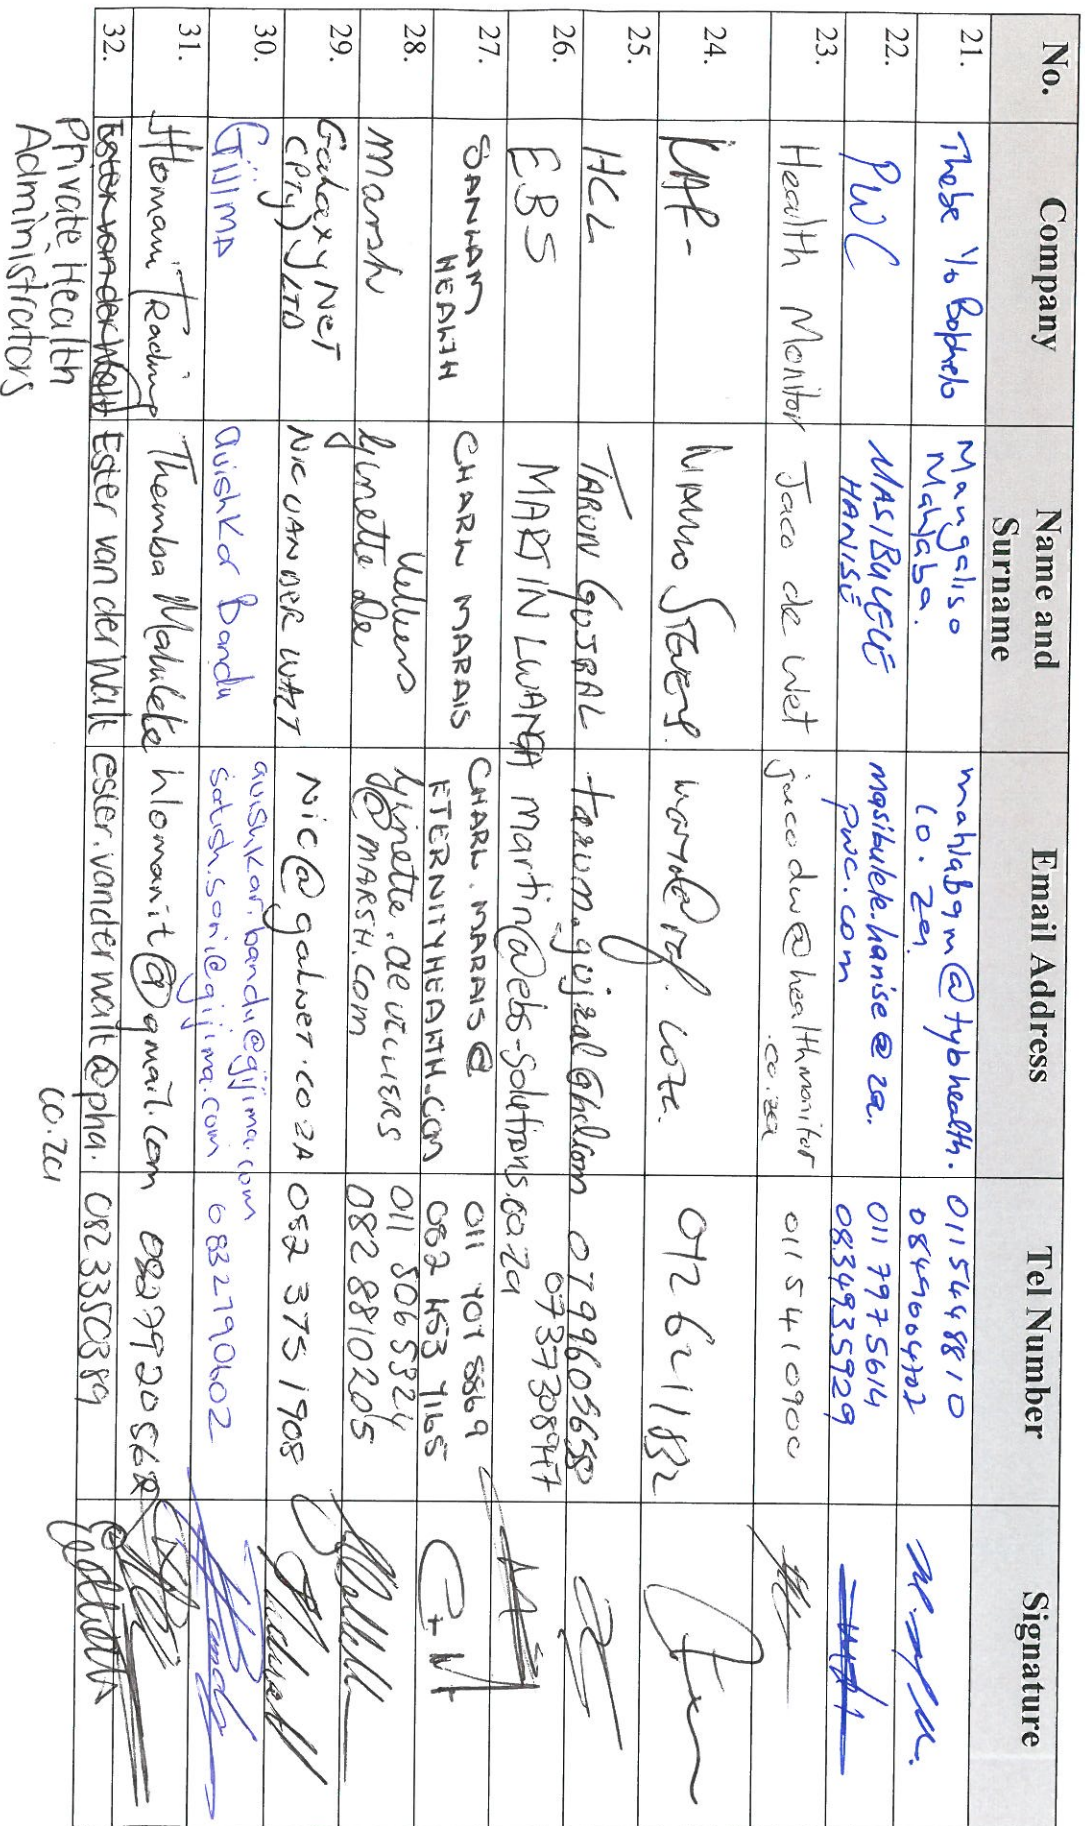 No. Company Name and Surname Email Address Tel Number Signature
21. Thebe Ya Bophelo Mangaliso Mahlaba. mahlabam@tybhealth.co.za. 0115448810 0849004702
22. PWC MASIBULELE HANISE masibulele.hanise@za.pwc.com 011 797 5614 0834935929
23. Health Monitor Jaco de Wet jacodw@healthmonitor.co.za 011 541 0900
24. Stevens 0126211832
25. HCL TARUN GUJRAL tarun.gujral@hcl.com 0799605650
26. EBS MARTIN LWANGA martin@ebs-solutions.co.za 0737308947
27. SANLAM HEALTH CHARL MARAIS CHARL.MARAIS@ETERNITYHEALTH.COM 082 453 7165
28. Marsh Lynette De Villiers lynette.deVILLIERS@MARSH.COM 011 506 5324 082 8810205
29. Galaxy Net (Pty) LTD NIC VAN DER WALT Nic@galnet.co.zA 082 375 1908
30. GIJIMA avishkar Bandu avishkar.bandu@gijima.com satish.soni@gijima.com 0832790602
31. Hlomani Trading Themba Maluleke hlomanit@gmail.com
32. Ester van der Walt Private Health Administrators Ester van der Walt ester.vanderwalt@pha.co.za 0823350389